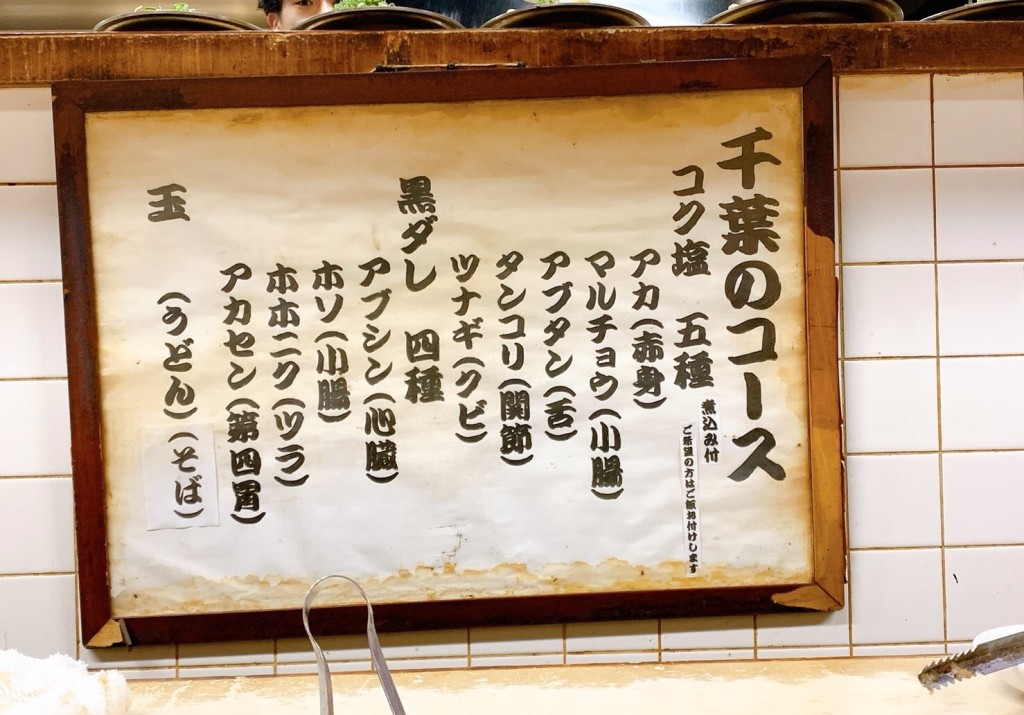 千葉のコース
コク塩 五種
煮込み付
ご希望の方はご飯お付けします
アカ(赤身)
マルチョウ(小腸)
アブタン(舌)
タンコリ(関節)
ツナギ(クビ)
黒ダレ 四種
アブシン(心臓)
ホソ(小腸)
ホホニク(ツラ)
アカセン(第四胃)
玉 (うどん)(そば)